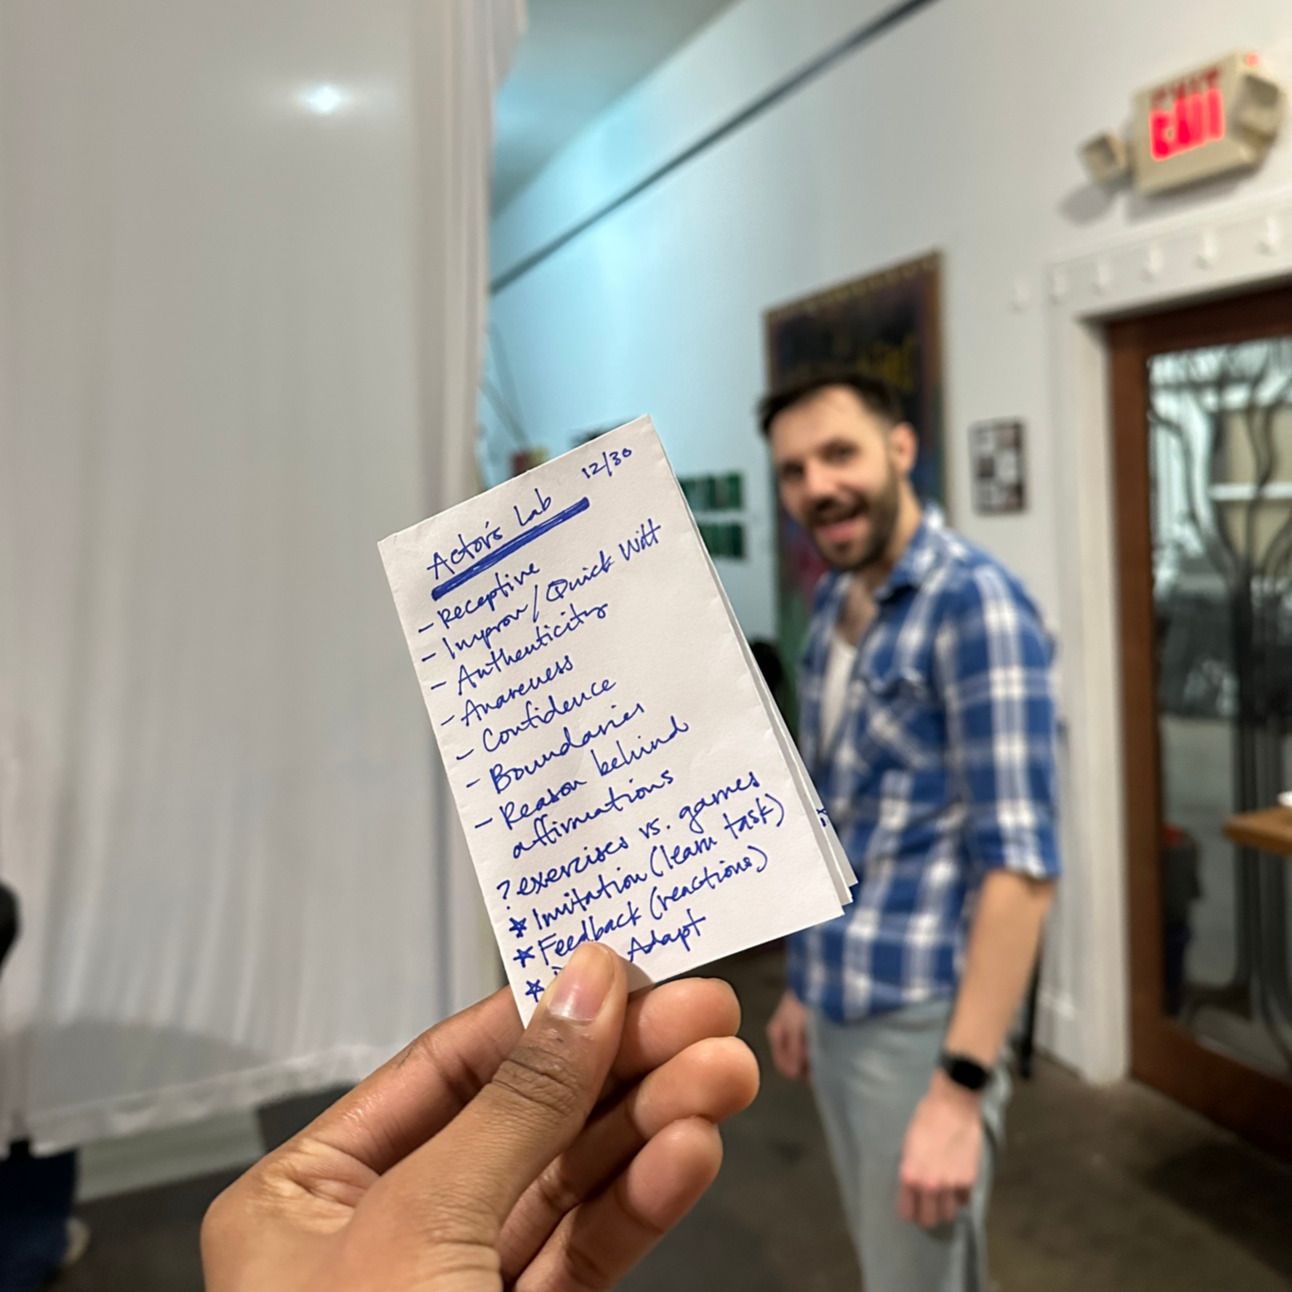 12/30
Actor's Lab
- Receptive
- Improv/Quick Witt
- Authenticity
- Awareness
- Confidence
- Boundaries
- Reason behind
affirmations
? exercises vs. games
* Imitation (learn task)
* Feedback (reactions)
* Adapt
EXIT